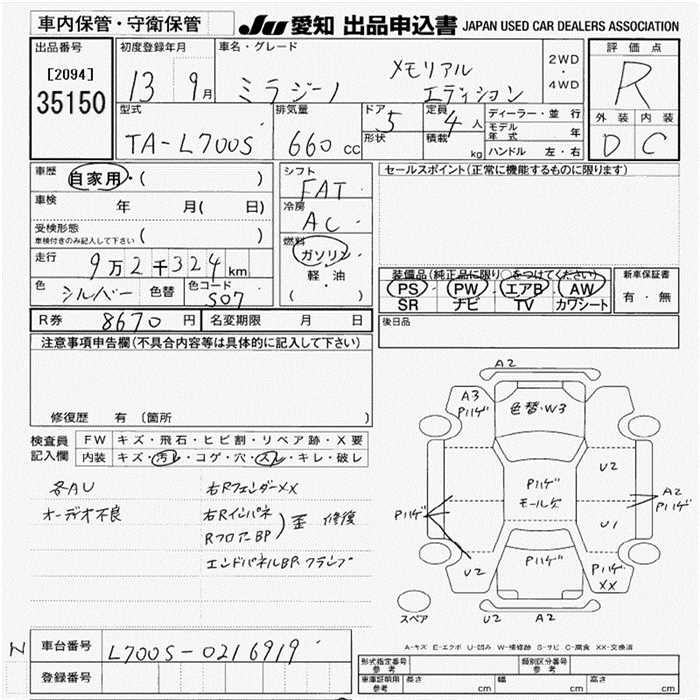 車内保管・守衛保管
JU 愛知 出品申込書 JAPAN USED CAR DEALERS ASSOCIATION
出品番号 [2094] 35150
初度登録年月 13 9月
車名・グレード ミラジーノ メモリアル エディション
2WD・4WD
評価点 R
外装 D 内装 C
型式 TA-L700S
排気量 660 cc
ドア 5 形状
定員 4人 積載 kg
ディーラー・並行
モデル年式 年
ハンドル 左・右
車歴 自家用・( )
車検 年 月( 日)
受検形態 車検付きのみ記入して下さい ( )
走行 9万2千324km
色 シルバー 色替 色コード S07
シフト FAT
冷房 AC
燃料 ガソリン 軽・油 ( )
セールスポイント(正常に機能するものに限ります)
装備品(純正品に限り○をつけてください)
PS PW エアB AW
SR ナビ TV カワシート
新車保証書 有・無
後日品
R券 8670 円 名変期限 月 日
注意事項申告欄(不具合内容等は具体的に記入して下さい)
修復歴 有 (箇所 )
検査員記入欄
FW キズ・飛石・ヒビ割・リペア跡・X要
内装 キズ・汚レ・コゲ・穴・スレ・キレ・破レ
各AU
オーデオ不良
右RフェンダーXX
右Rインパネ
RフロアーBP
歪 修復
エンドパネルBP クランプ
A2
A3 Pハゲ
色替・W3
Pハゲ
U2
Pハゲ モールゲ
Pハゲ
A2 Pハゲ
U1
U2
Pハゲ
Pハゲ XX
スペア
U2 A2
A-キズ E-エクボ U-凹み W-補修跡 S-サビ C-腐食 XX-交換済
N 車台番号 L700S-0216919
登録番号
形式指定番号 参考 類別区分番号 参考
車庫証明用 参考 長さ cm 幅 cm 高さ cm